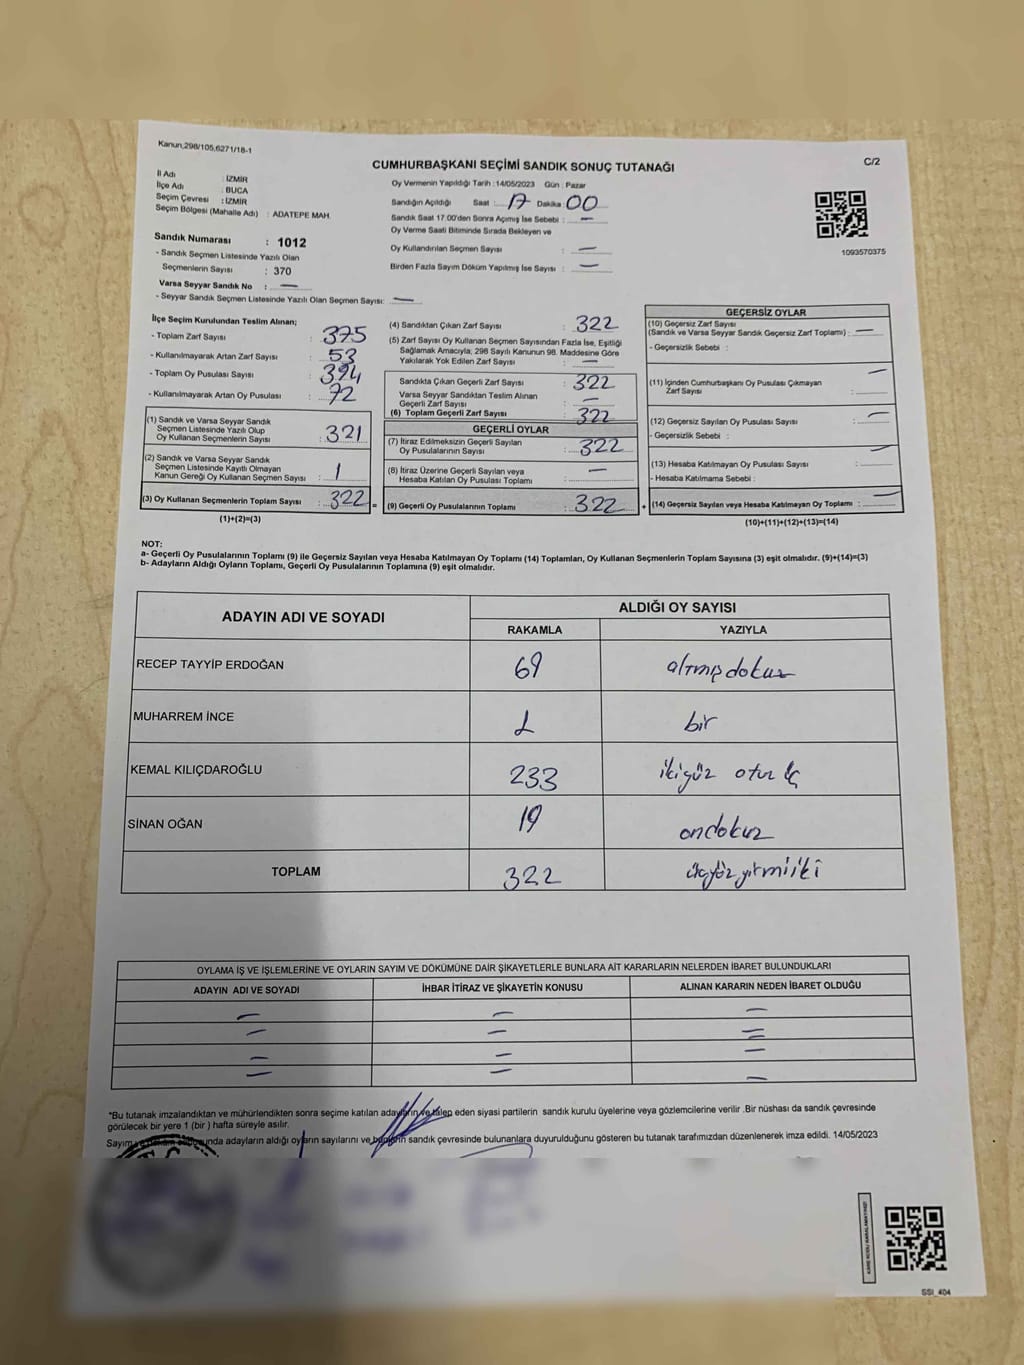 Kanun,298/105,6271/18-1
C/2
CUMHURBAŞKANI SEÇİMİ SANDIK SONUÇ TUTANAĞI
İl Adı : İZMİR
İlçe Adı : BUCA
Seçim Çevresi : İZMİR
Seçim Bölgesi (Mahalle Adı) : ADATEPE MAH.
Oy Vermenin Yapıldığı Tarih :14/05/2023 Gün : Pazar
Sandığın Açıldığı Saat : 17 Dakika : 00
Sandık Saat 17.00'den Sonra Açımış İse Sebebi : —
Oy Verme Saati Bitiminde Sırada Bekleyen ve
Oy Kullandırılan Seçmen Sayısı : —
Birden Fazla Sayım Döküm Yapılmış İse Sayısı : —
1093570375
Sandık Numarası : 1012
- Sandık Seçmen Listesinde Yazılı Olan
Seçmenlerin Sayısı : 370
Varsa Seyyar Sandık No : —
- Seyyar Sandık Seçmen Listesinde Yazılı Olan Seçmen Sayısı: —
İlçe Seçim Kurulundan Teslim Alınan;
- Toplam Zarf Sayısı : 375
- Kullanılmayarak Artan Zarf Sayısı : 53
- Toplam Oy Pusulası Sayısı : 394
- Kullanılmayarak Artan Oy Pusulası : 72
(1) Sandık ve Varsa Seyyar Sandık
Seçmen Listesinde Yazılı Olup
Oy Kullanan Seçmenlerin Sayısı : 321
(2) Sandık ve Varsa Seyyar Sandık
Seçmen Listesinde Kayıtlı Olmayan
Kanun Gereği Oy Kullanan Seçmen Sayısı : 1
(3) Oy Kullanan Seçmenlerin Toplam Sayısı : 322
(1)+(2)=(3)
(4) Sandıktan Çıkan Zarf Sayısı : 322
(5) Zarf Sayısı Oy Kullanan Seçmen Sayısından Fazla İse, Eşitliği
Sağlamak Amacıyla, 298 Sayılı Kanunun 98. Maddesine Göre
Yakılarak Yok Edilen Zarf Sayısı : —
Sandıkta Çıkan Geçerli Zarf Sayısı : 322
Varsa Seyyar Sandıktan Teslim Alınan
Geçerli Zarf Sayısı : —
(6) Toplam Geçerli Zarf Sayısı : 322
GEÇERLİ OYLAR
(7) İtiraz Edilmeksizin Geçerli Sayılan
Oy Pusulalarının Sayısı : 322
(8) İtiraz Üzerine Geçerli Sayılan veya
Hesaba Katılan Oy Pusulası Toplamı : —
= (9) Geçerli Oy Pusulalarının Toplamı : 322
GEÇERSİZ OYLAR
(10) Geçersiz Zarf Sayısı
(Sandık ve Varsa Seyyar Sandık Geçersiz Zarf Toplamı) : —
- Geçersizlik Sebebi : —
(11) İçinden Cumhurbaşkanı Oy Pusulası Çıkmayan
Zarf Sayısı : —
(12) Geçersiz Sayılan Oy Pusulası Sayısı : —
- Geçersizlik Sebebi :
(13) Hesaba Katılmayan Oy Pusulası Sayısı : —
- Hesaba Katılmama Sebebi :
+ (14) Geçersiz Sayılan veya Hesaba Katılmayan Oy Toplamı : —
(10)+(11)+(12)+(13)=(14)
NOT:
a- Geçerli Oy Pusulalarının Toplamı (9) ile Geçersiz Sayılan veya Hesaba Katılmayan Oy Toplamı (14) Toplamları, Oy Kullanan Seçmenlerin Toplam Sayısına (3) eşit olmalıdır. (9)+(14)=(3)
b- Adayların Aldığı Oyların Toplamı, Geçerli Oy Pusulalarının Toplamına (9) eşit olmalıdır.
ADAYIN ADI VE SOYADI
ALDIĞI OY SAYISI
RAKAMLA YAZIYLA
RECEP TAYYİP ERDOĞAN 69 altmışdokuz
MUHARREM İNCE 1 bir
KEMAL KILIÇDAROĞLU 233 ikiyüz otuz üç
SİNAN OĞAN 19 ondokuz
TOPLAM 322 üçyüz yirmiiki
OYLAMA İŞ VE İŞLEMLERİNE VE OYLARIN SAYIM VE DÖKÜMÜNE DAİR ŞİKAYETLERLE BUNLARA AİT KARARLARIN NELERDEN İBARET BULUNDUKLARI
ADAYIN ADI VE SOYADI İHBAR İTİRAZ VE ŞİKAYETİN KONUSU ALINAN KARARIN NEDEN İBARET OLDUĞU
*Bu tutanak imzalandıktan ve mühürlendikten sonra seçime katılan adayların ve talep eden siyasi partilerin sandık kurulu üyelerine veya gözlemcilerine verilir .Bir nüshası da sandık çevresinde
görülecek bir yere 1 (bir ) hafta süreyle asılır.
Sayım adayların aldığı oyların sayılarını ve bunların sandık çevresinde bulunanlara duyurulduğunu gösteren bu tutanak tarafımızdan düzenlenerek imza edildi. 14/05/2023
SSI_404